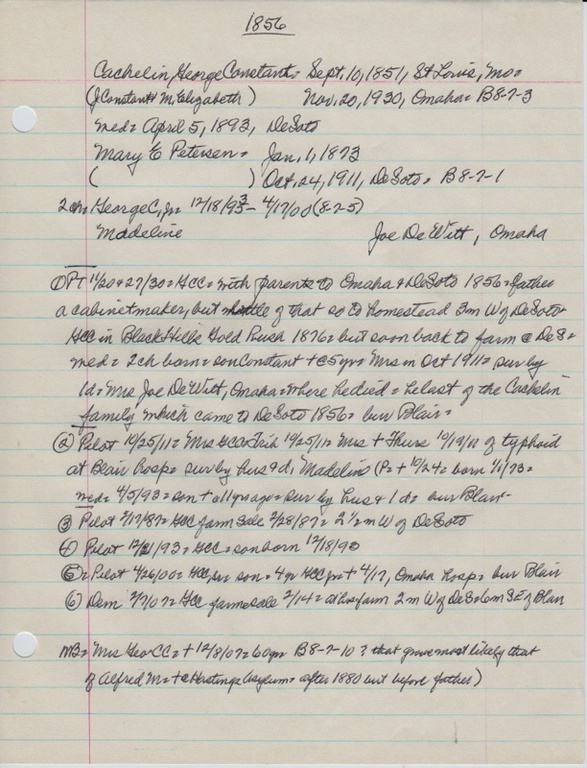 1856
Cachelin, George Constant = Sept. 10, 1851, St Louis, Mo=
(J Constant M. Elizabeth) Nov. 20, 1930, Omaha = B8-7-3
med = April 5, 1893, DeSoto
Mary E Petersen = Jan. 1, 1873
( ) Oct. 24, 1911, DeSoto = B8-7-1
2 ch = George C, Jr = 12/18/93 - 4/17/00 (8-7-5)
Madeline Joe DeWitt, Omaha
① PT 11/20 & 27/30 = GCC = with parents to Omaha & DeSoto 1856 = father
a cabinetmaker, but little of that so to homestead 3m W of DeSoto
GCC in Black Hills Gold Rush 1876 = but soon back to farm @ DeS =
med = 2ch born = son Constant + @ 5 yrs = Mrs in Oct 1911 = sur by
1d = Mrs Joe DeWitt, Omaha = where he died = he last of the Cachelin
family which came to DeSoto 1856 = bur Blair =
② Pilot 10/25/11 = Mrs GCC = 10/25/11 = Mrs + Thurs 10/19/11 of typhoid
at Blair hosp = sur by hus & d, Madeline (P = + 10/24 = born 1/1/73 =
med = 4/5/93 = son + 11 yrs ago = sur by hus & 1 d = bur Blair -
③ Pilot 2/17/87 = GCC farm sale 2/28/87 = 2 1/2 m W of DeSoto
④ Pilot 12/21/93 = GCC = son born 12/18/93
⑤ = Pilot 4/26/00 = GCC Jr = son = 4 yr GCC Jr + 4/17, Omaha hosp = bur Blair
⑥ Dem 2/7/07 = GCC farm sale 2/14 = at his farm 2m W of DeS = 6m SE of Blair
NB = Mrs Geo CC = + 12/8/07 = 60 yr B8-7-10 ? that grave most likely that
of Alfred M = + @ Hastings Asylum = after 1880 but before father)